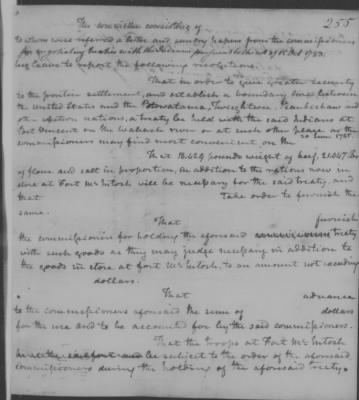 255
The committee consisting of
to whom were referred a letter and sundry papers from the commissioners
for negotiating treaties with the Indians
beg leave to report the following resolutions.
That in order to give greater security
to the frontier settlements, and establish a boundary line between
the United States and the Potowatama, Twightwee, Piankishaw and
other western nations, a treaty be held with the said Indians at
Post Vincent on the Wabash river or at such other place as the
commissioners may find most convenient on the
20 June 1785.
That 18,429 pounds weight of beef, 21,047 lbs
of flour and salt in proportion, in addition to the rations now in
store at Fort McIntosh will be necessary for the said treaty, and
that Take order to furnish the
same.
That furnish
the commissioners for holding the aforesaid treaty
with such goods as they may judge necessary in addition to
the goods in store at fort McIntosh, to an amount not exceeding
dollars.
That advance
to the commissioners aforesaid the sum of dollars
for the use and to be accounted for by the said commissioners.
That the troops at Fort McIntosh
be subject to the order of the aforesaid
commissioners during the holding of the aforesaid treaty.